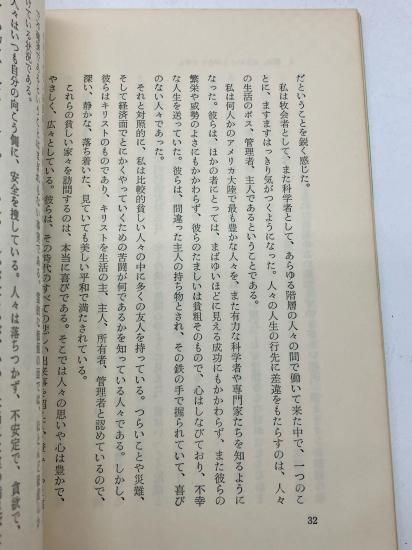 だということを鋭く感じた。
私は牧会者として、また科学者として、あらゆる階層の人々の間で働いて来た中で、一つのこ
とに、ますますはっきり気がつくようになった。人々の人生の行先に差違をもたらすのは、人々
の生活のボス、管理者、主人であるということである。
私は何人かのアメリカ大陸で最も豊かな人々を、また有力な科学者や専門家たちを知るように
なった。彼らは、ほかの者にとっては、まばゆいほどに見える成功にもかかわらず、また彼らの
繁栄や威勢のよさにもかかわらず、彼らのたましいは貧粗そのもので、心はしなびており、不幸
な人生を送っていた。彼らは、間違った主人の持ち物とされ、その鉄の手で握られていて、喜び
のない人々であった。
それと対照的に、私は比較的貧しい人々の中に多くの友人を持っている。つらいことや災難、
そして経済面でとにかくやっていくための苦闘が何であるかを知っている人々である。しかし、
彼らはキリストのものであり、キリストを生活の主、主人、所有者、管理者と認めているので、
深い、静かな、落ち着いた、見ていても美しい平和で満たされている。
これらの貧しい家々を訪問するのは、本当に喜びである。そこでは人々の思いや心は豊かで、
やさしく、広々としている。彼らは、その時代のすべての悲しい出来
人々はいつも自分の向こう側に、安全を捜している。人々は落ちつかず、不安定で、貪欲で、
32